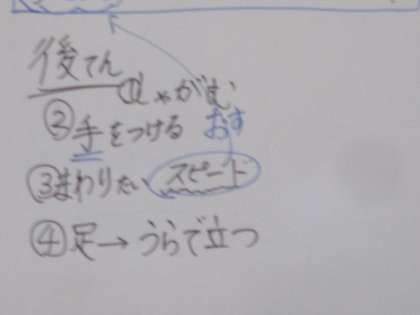 後てん
①しゃがむ
②手をつける おす
③まわりたい スピード
④足→うらで立つ